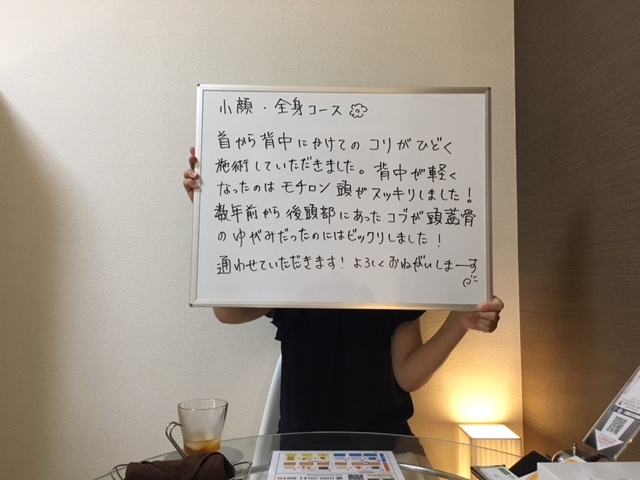 小顔・全身コース
首から背中にかけてのコリがひどく
施術していただきました。背中が軽く
なったのはモチロン頭がスッキリしました！
数年前から後頭部にあったコブが頭蓋骨
のゆがみだったのにはビックリしました！
通わせていただきます！よろしくおねがいしまーす